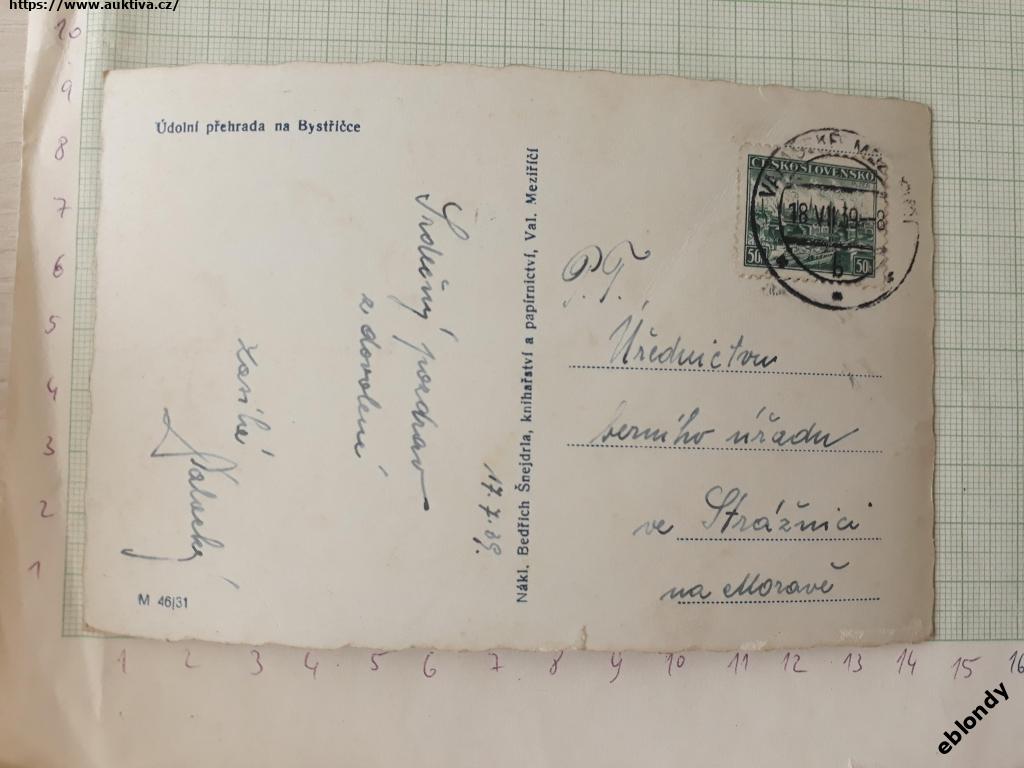 https://www.auktiva.cz/
Údolní přehrada na Bystřičce
Srdečný pozdrav
z dovolené
17.7.39.
M 46/31
Nákl. Bedřich Šnejdrla, knihařství a papírnictví, Val. Meziříčí
ČESKOSLOVENSKO
50 50
18 VII 39-8
b
P.T.
Úřednictvu
berního úřadu
ve Strážnici
na Moravě
10
9
8
7
6
5
4
3
2
1
1 2 3 4 5 6 7 8 9 10 11 12 13 14 15 16
eblondy